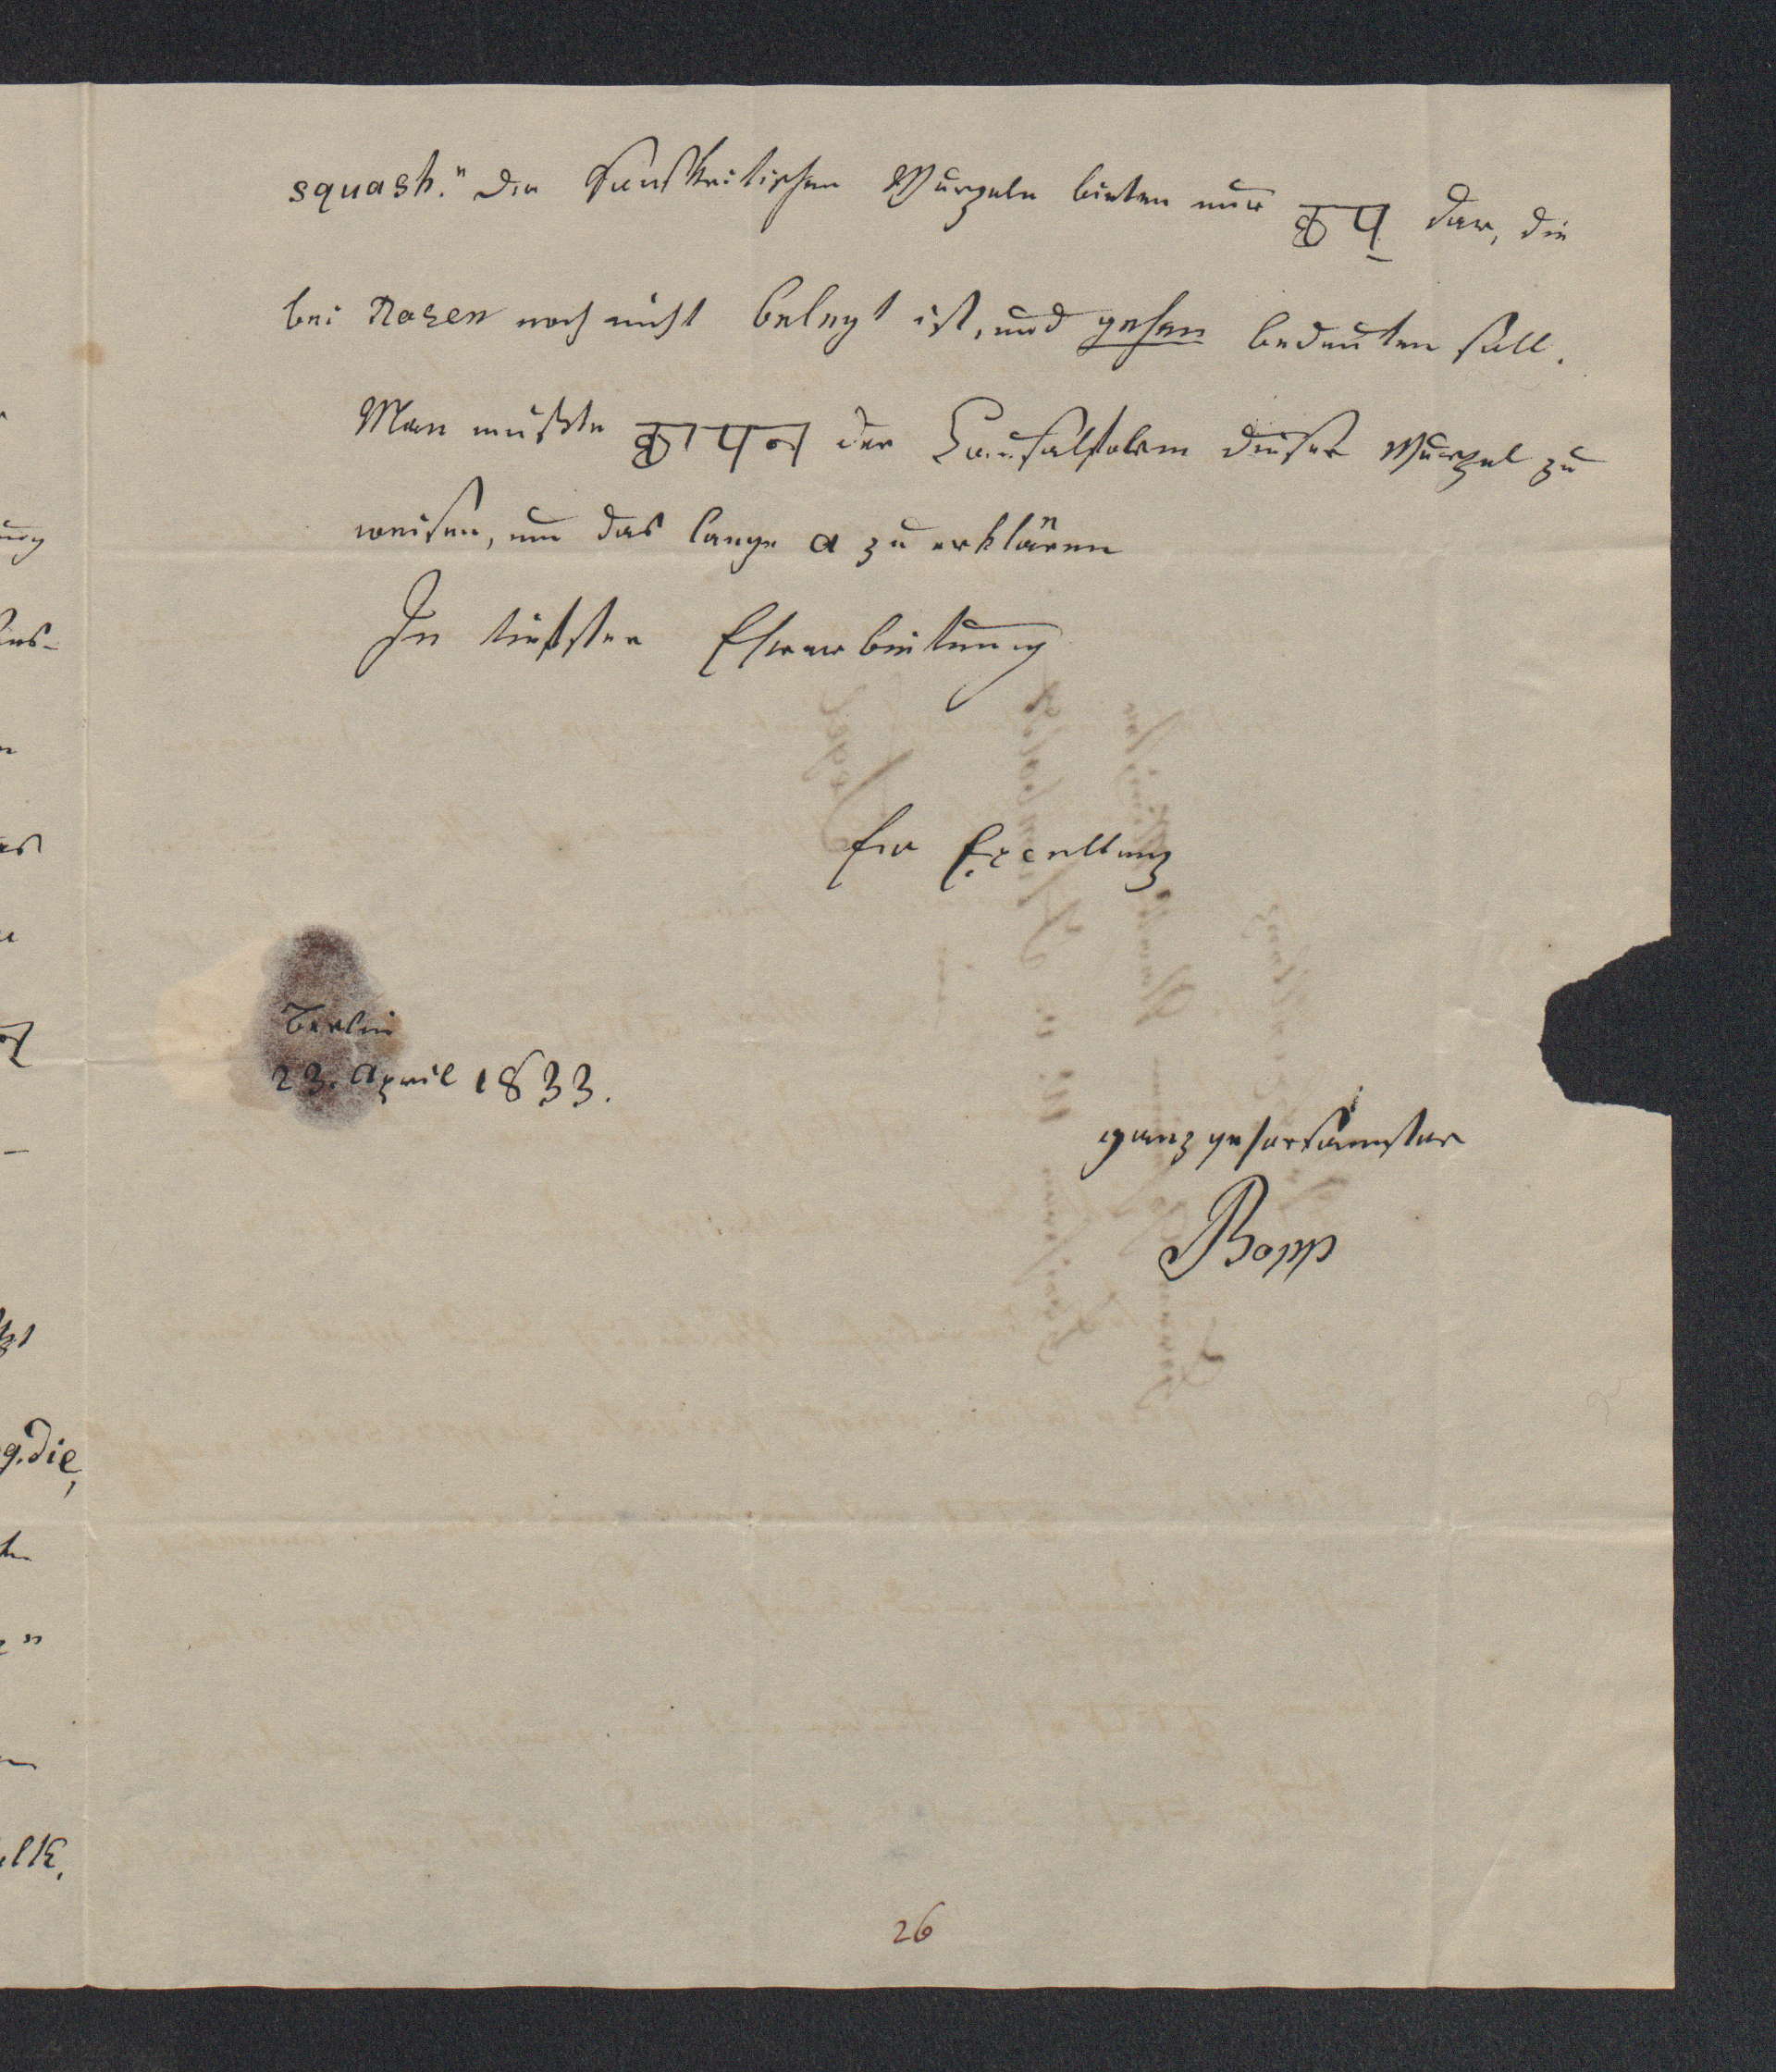 squash." Die Sanskritischen Wurzeln bieten nur कप् dar, die
bei Rosen noch nicht belegt ist, und gehen bedeuten soll.
Man müßte कापन der Causalform dieser Wurzel zu
weisen, um das lange a zu erklären
In tiefster Ehrerbietung
Ew Excellenz
Berlin
23. April 1833.
ganz gehorsamster
Bopp
26